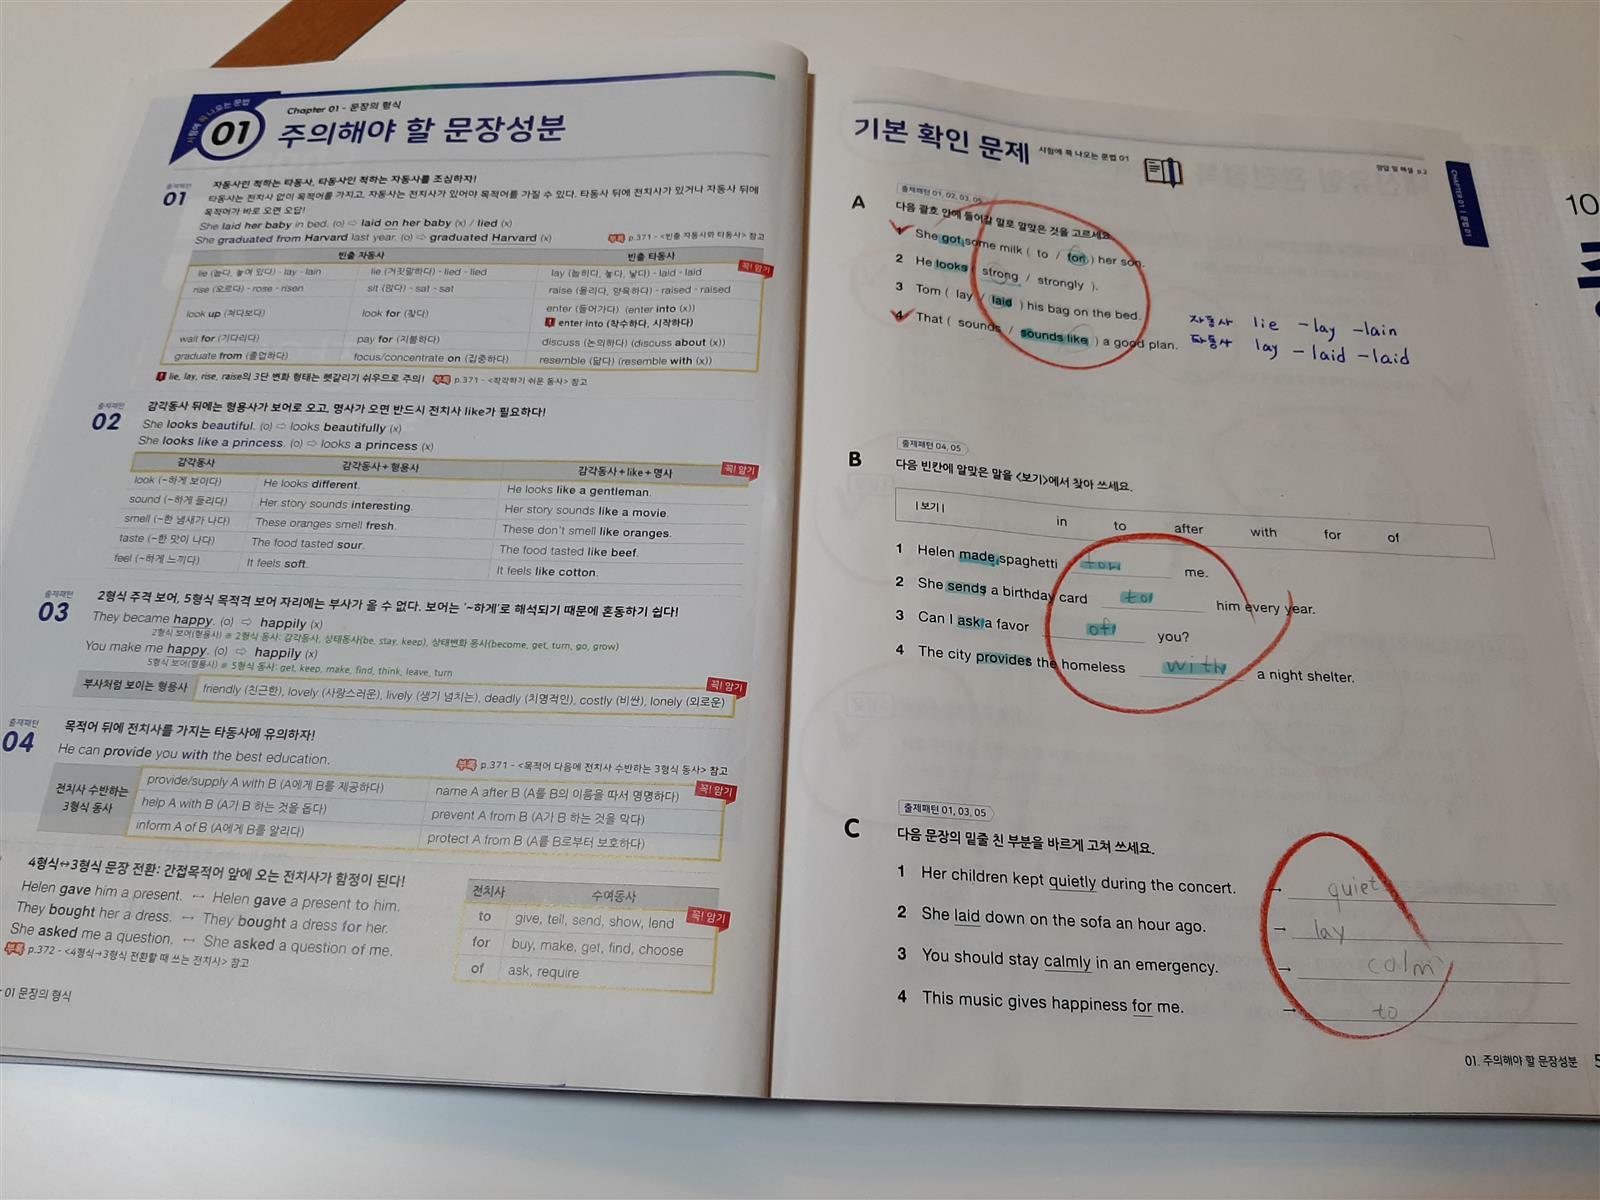 시험에 꼭 나오는 문법
01
Chapter 01 - 문장의 형식
주의해야 할 문장성분
출제패턴
01
자동사인 척하는 타동사, 타동사인 척하는 자동사를 조심하자!
타동사는 전치사 없이 목적어를 가지고, 자동사는 전치사가 있어야 목적어를 가질 수 있다. 타동사 뒤에 전치사가 있거나 자동사 뒤에
목적어가 바로 오면 오답!
She laid her baby in bed. (o) ⇨ laid on her baby (x) / lied (x)
She graduated from Harvard last year. (o) ⇨ graduated Harvard (x)
부록 p.371 - <빈출 자동사와 타동사> 참고
빈출 자동사 빈출 타동사
꼭! 암기
lie (눕다, 놓여 있다) - lay - lain lie (거짓말하다) - lied - lied lay (눕히다, 놓다, 낳다) - laid - laid
rise (오르다) - rose - risen sit (앉다) - sat - sat raise (올리다, 양육하다) - raised - raised
look up (쳐다보다) look for (찾다) enter (들어가다) (enter into (x))
! enter into (착수하다, 시작하다)
wait for (기다리다) pay for (지불하다) discuss (논의하다) (discuss about (x))
graduate from (졸업하다) focus/concentrate on (집중하다) resemble (닮다) (resemble with (x))
! lie, lay, rise, raise의 3단 변화 형태는 헷갈리기 쉬우므로 주의! 부록 p.371 - <착각하기 쉬운 동사> 참고
출제패턴
02
감각동사 뒤에는 형용사가 보어로 오고, 명사가 오면 반드시 전치사 like가 필요하다!
She looks beautiful. (o) ⇨ looks beautifully (x)
She looks like a princess. (o) ⇨ looks a princess (x)
감각동사 감각동사+형용사 감각동사+like+명사
꼭! 암기
look (~하게 보이다) He looks different. He looks like a gentleman.
sound (~하게 들리다) Her story sounds interesting. Her story sounds like a movie.
smell (~한 냄새가 나다) These oranges smell fresh. These don't smell like oranges.
taste (~한 맛이 나다) The food tasted sour. The food tasted like beef.
feel (~하게 느끼다) It feels soft. It feels like cotton.
출제패턴
03
2형식 주격 보어, 5형식 목적격 보어 자리에는 부사가 올 수 없다. 보어는 '~하게'로 해석되기 때문에 혼동하기 쉽다!
They became happy. (o) ⇨ happily (x)
2형식 보어(형용사) ※ 2형식 동사: 감각동사, 상태동사(be, stay, keep), 상태변화 동사(become, get, turn, go, grow)
You make me happy. (o) ⇨ happily (x)
5형식 보어(형용사) ※ 5형식 동사: get, keep, make, find, think, leave, turn
꼭! 암기
부사처럼 보이는 형용사 friendly (친근한), lovely (사랑스러운), lively (생기 넘치는), deadly (치명적인), costly (비싼), lonely (외로운)
출제패턴
04
목적어 뒤에 전치사를 가지는 타동사에 유의하자!
He can provide you with the best education.
부록 p.371 - <목적어 다음에 전치사 수반하는 3형식 동사> 참고
꼭! 암기
전치사 수반하는
3형식 동사
provide/supply A with B (A에게 B를 제공하다) name A after B (A를 B의 이름을 따서 명명하다)
help A with B (A가 B 하는 것을 돕다) prevent A from B (A가 B 하는 것을 막다)
inform A of B (A에게 B를 알리다) protect A from B (A를 B로부터 보호하다)
4형식↔3형식 문장 전환: 간접목적어 앞에 오는 전치사가 함정이 된다!
Helen gave him a present. ↔ Helen gave a present to him.
They bought her a dress. ↔ They bought a dress for her.
She asked me a question. ↔ She asked a question of me.
부록 p.372 - <4형식→3형식 전환할 때 쓰는 전치사> 참고
전치사 수여동사
꼭! 암기
to give, tell, send, show, lend
for buy, make, get, find, choose
of ask, require
01 문장의 형식
기본 확인 문제
시험에 꼭 나오는 문법 01
정답 및 해설 p.2
CHAPTER 01 | 문법 01
출제패턴 01, 02, 03, 05
A 다음 괄호 안에 들어갈 말로 알맞은 것을 고르세요.
1 She got some milk ( to / for ) her son.
2 He looks ( strong / strongly ).
3 Tom ( lay / laid ) his bag on the bed.
4 That ( sounds / sounds like ) a good plan.
자동사 lie - lay - lain
타동사 lay - laid - laid
출제패턴 04, 05
B 다음 빈칸에 알맞은 말을 <보기>에서 찾아 쓰세요.
| 보기 | in to after with for of
1 Helen made spaghetti for me.
2 She sends a birthday card to him every year.
3 Can I ask a favor of you?
4 The city provides the homeless with a night shelter.
출제패턴 01, 03, 05
C 다음 문장의 밑줄 친 부분을 바르게 고쳐 쓰세요.
1 Her children kept quietly during the concert. → quiet
2 She laid down on the sofa an hour ago. → lay
3 You should stay calmly in an emergency. → calm
4 This music gives happiness for me. → to
01. 주의해야 할 문장성분
10